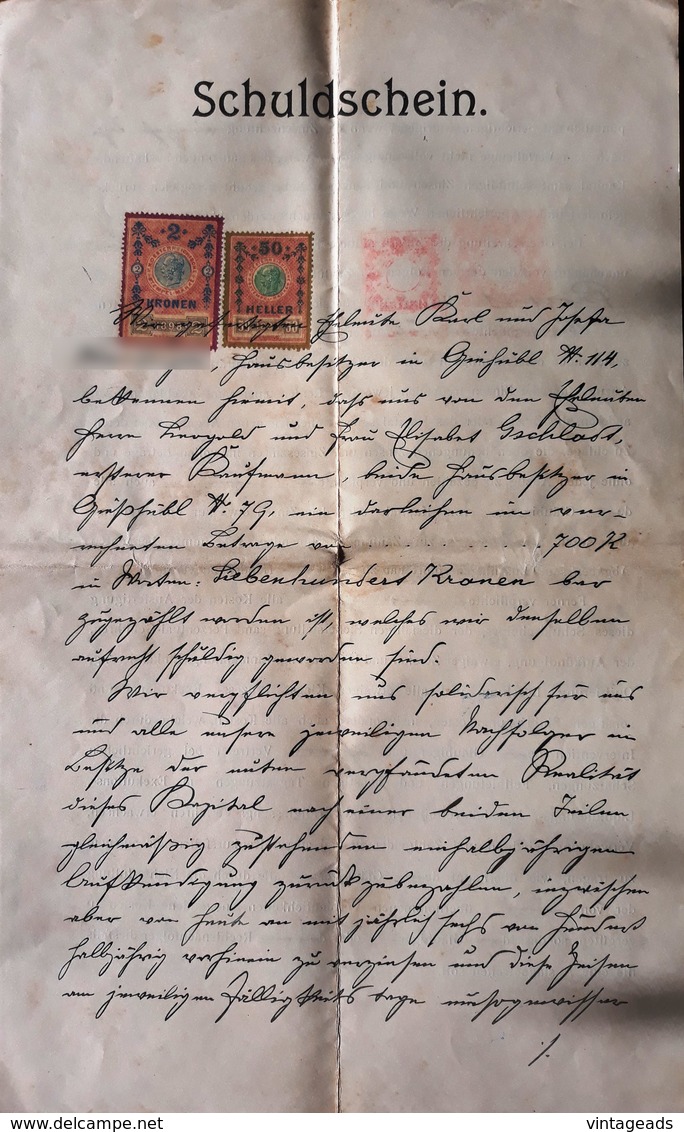 Schuldschein.
2
KRONEN
50
HELLER
Wir gefertigten Eheleute Karl und Josefa
, Hausbesitzer in Gießhübl N. 114,
bekennen hiermit, dass uns von den Eheleuten
Herrn Leopold und Frau Elisabet Gschlost,
ersterer Kaufmann, beide Hausbesitzer in
Gießhübl N. 79, ein Darleihen im
Betrage von 700 K
in Worten: Siebenhundert Kronen bar
zugezählt worden ist, welches wir denselben
aufrecht schuldig geworden sind.
Wir verpflichten uns solidarisch für uns
und alle unsere jeweiligen Nachfolger im
Besitze der unten verpfändeten Realität
dieses Kapital nach einer beiden Teilen
gleichmäßig zustehenden einhalbjährigen
Aufkündigung zurückzubezahlen, inzwischen
aber von heute an mit jährlich sechs von Hundert
halbjährig vorhinein zu verzinsen und diese Zinsen
am jeweiligen Fälligkeitstage umsogewisser
./.
www.delcampe.net
vintageads